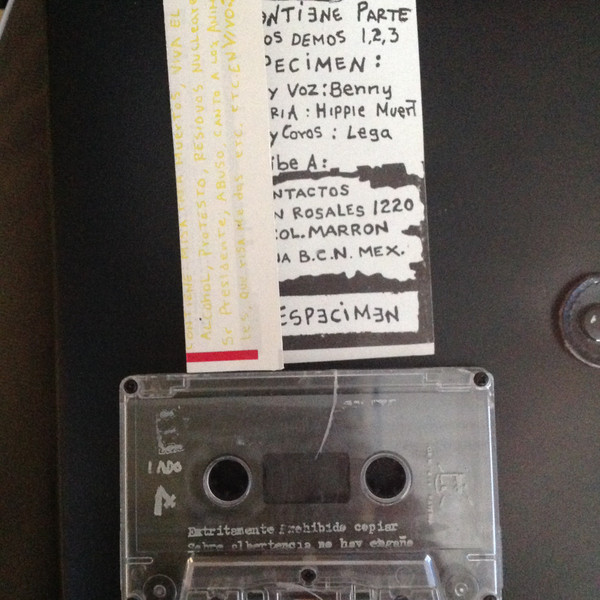 ONTIENE PARTE
OS DEMOS 1,2,3
PECIMEN:
Y VOZ: Benny
RIA: HIPPIE MUERT
y Coros: Lega
ibe A:
NTACTOS
N ROSALES 1220
OL. MARRON
A B.C.N. MEX.
ESPECIMEN
MUERTOS, VIVA EL
ALCOHOL, PROTESTO, RESIDUOS NUCLEA
Sr Presidente, ABUSO, CANTO A LOS
etc. etc. EN VIVO
LADO
2
Extritamente Prohibida copiar
Sobre albertencia no hay engaño